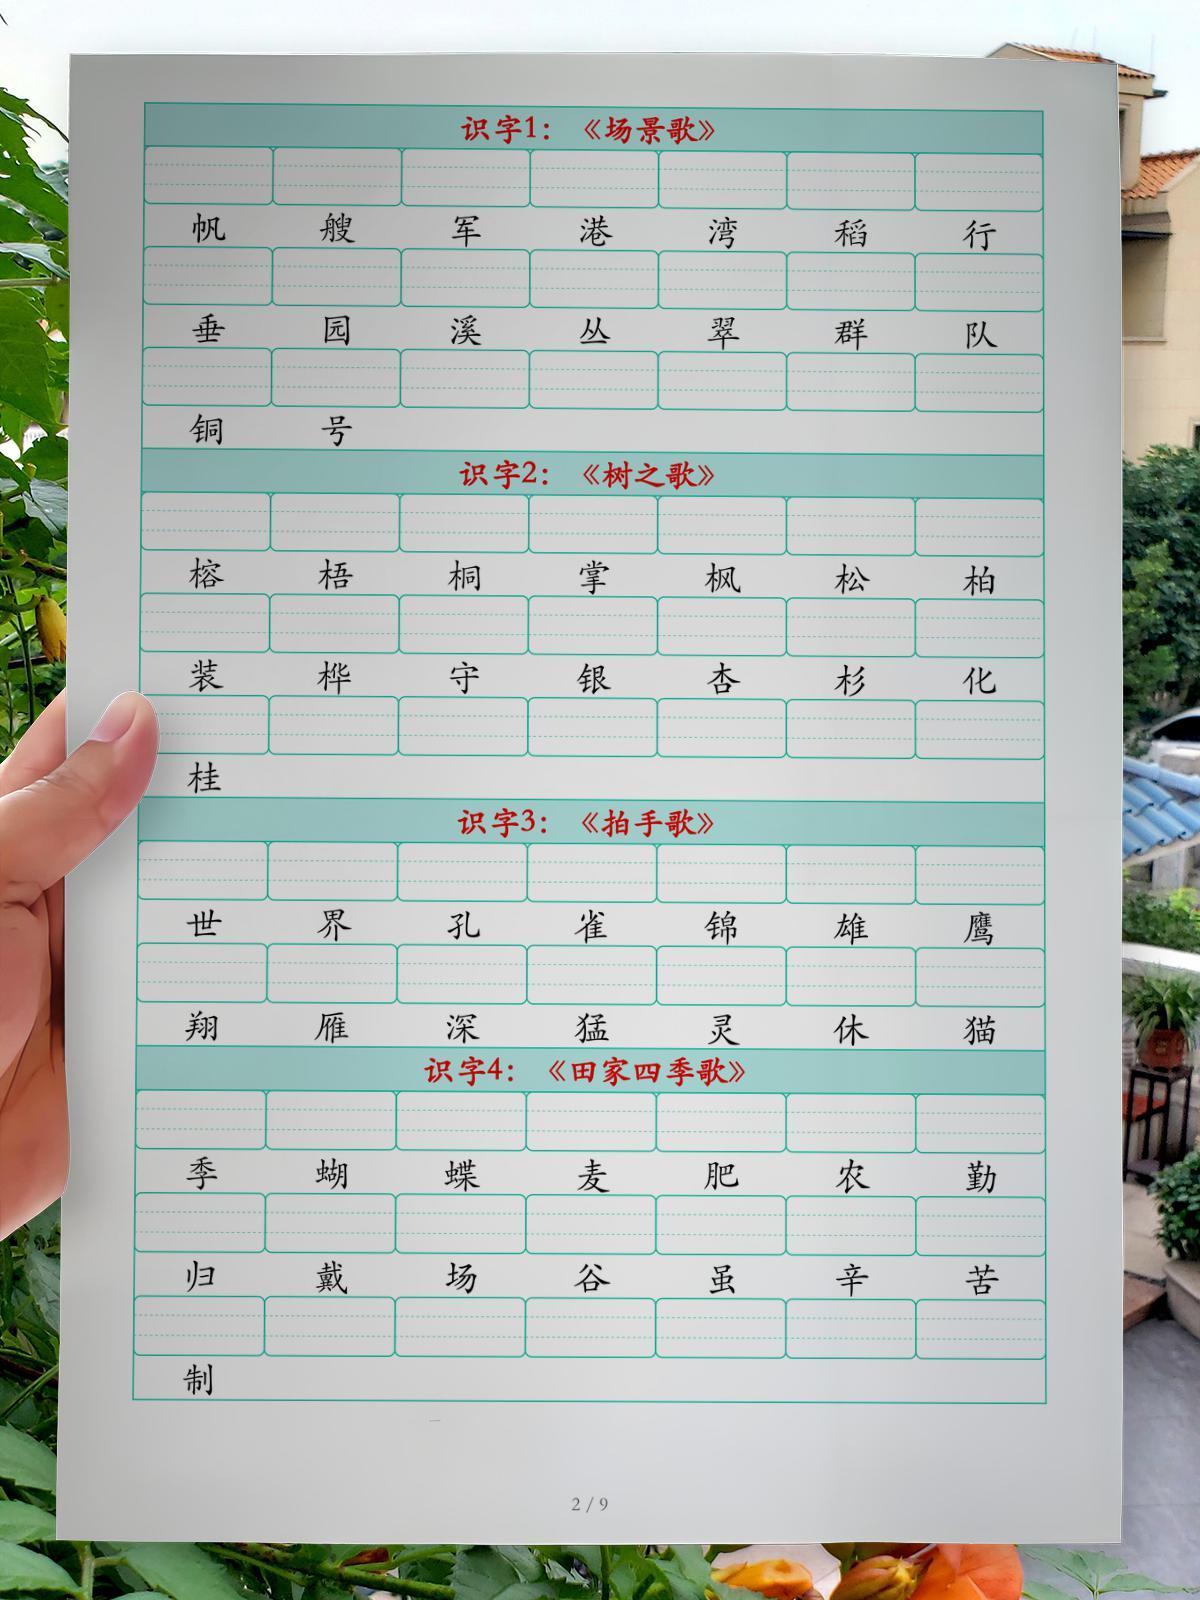 识字1：《场景歌》
帆 艘 军 港 湾 稻 行
垂 园 溪 丛 翠 群 队
铜 号
识字2：《树之歌》
榕 梧 桐 掌 枫 松 柏
装 桦 守 银 杏 杉 化
桂
识字3：《拍手歌》
世 界 孔 雀 锦 雄 鹰
翔 雁 深 猛 灵 休 猫
识字4：《田家四季歌》
季 蝴 蝶 麦 肥 农 勤
归 戴 场 谷 虽 辛 苦
制
2 / 9